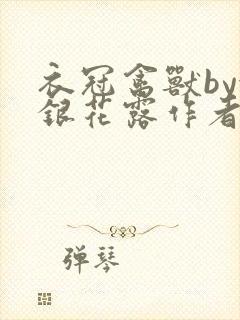 衣冠禽獸by
銀花露作者
弹琴